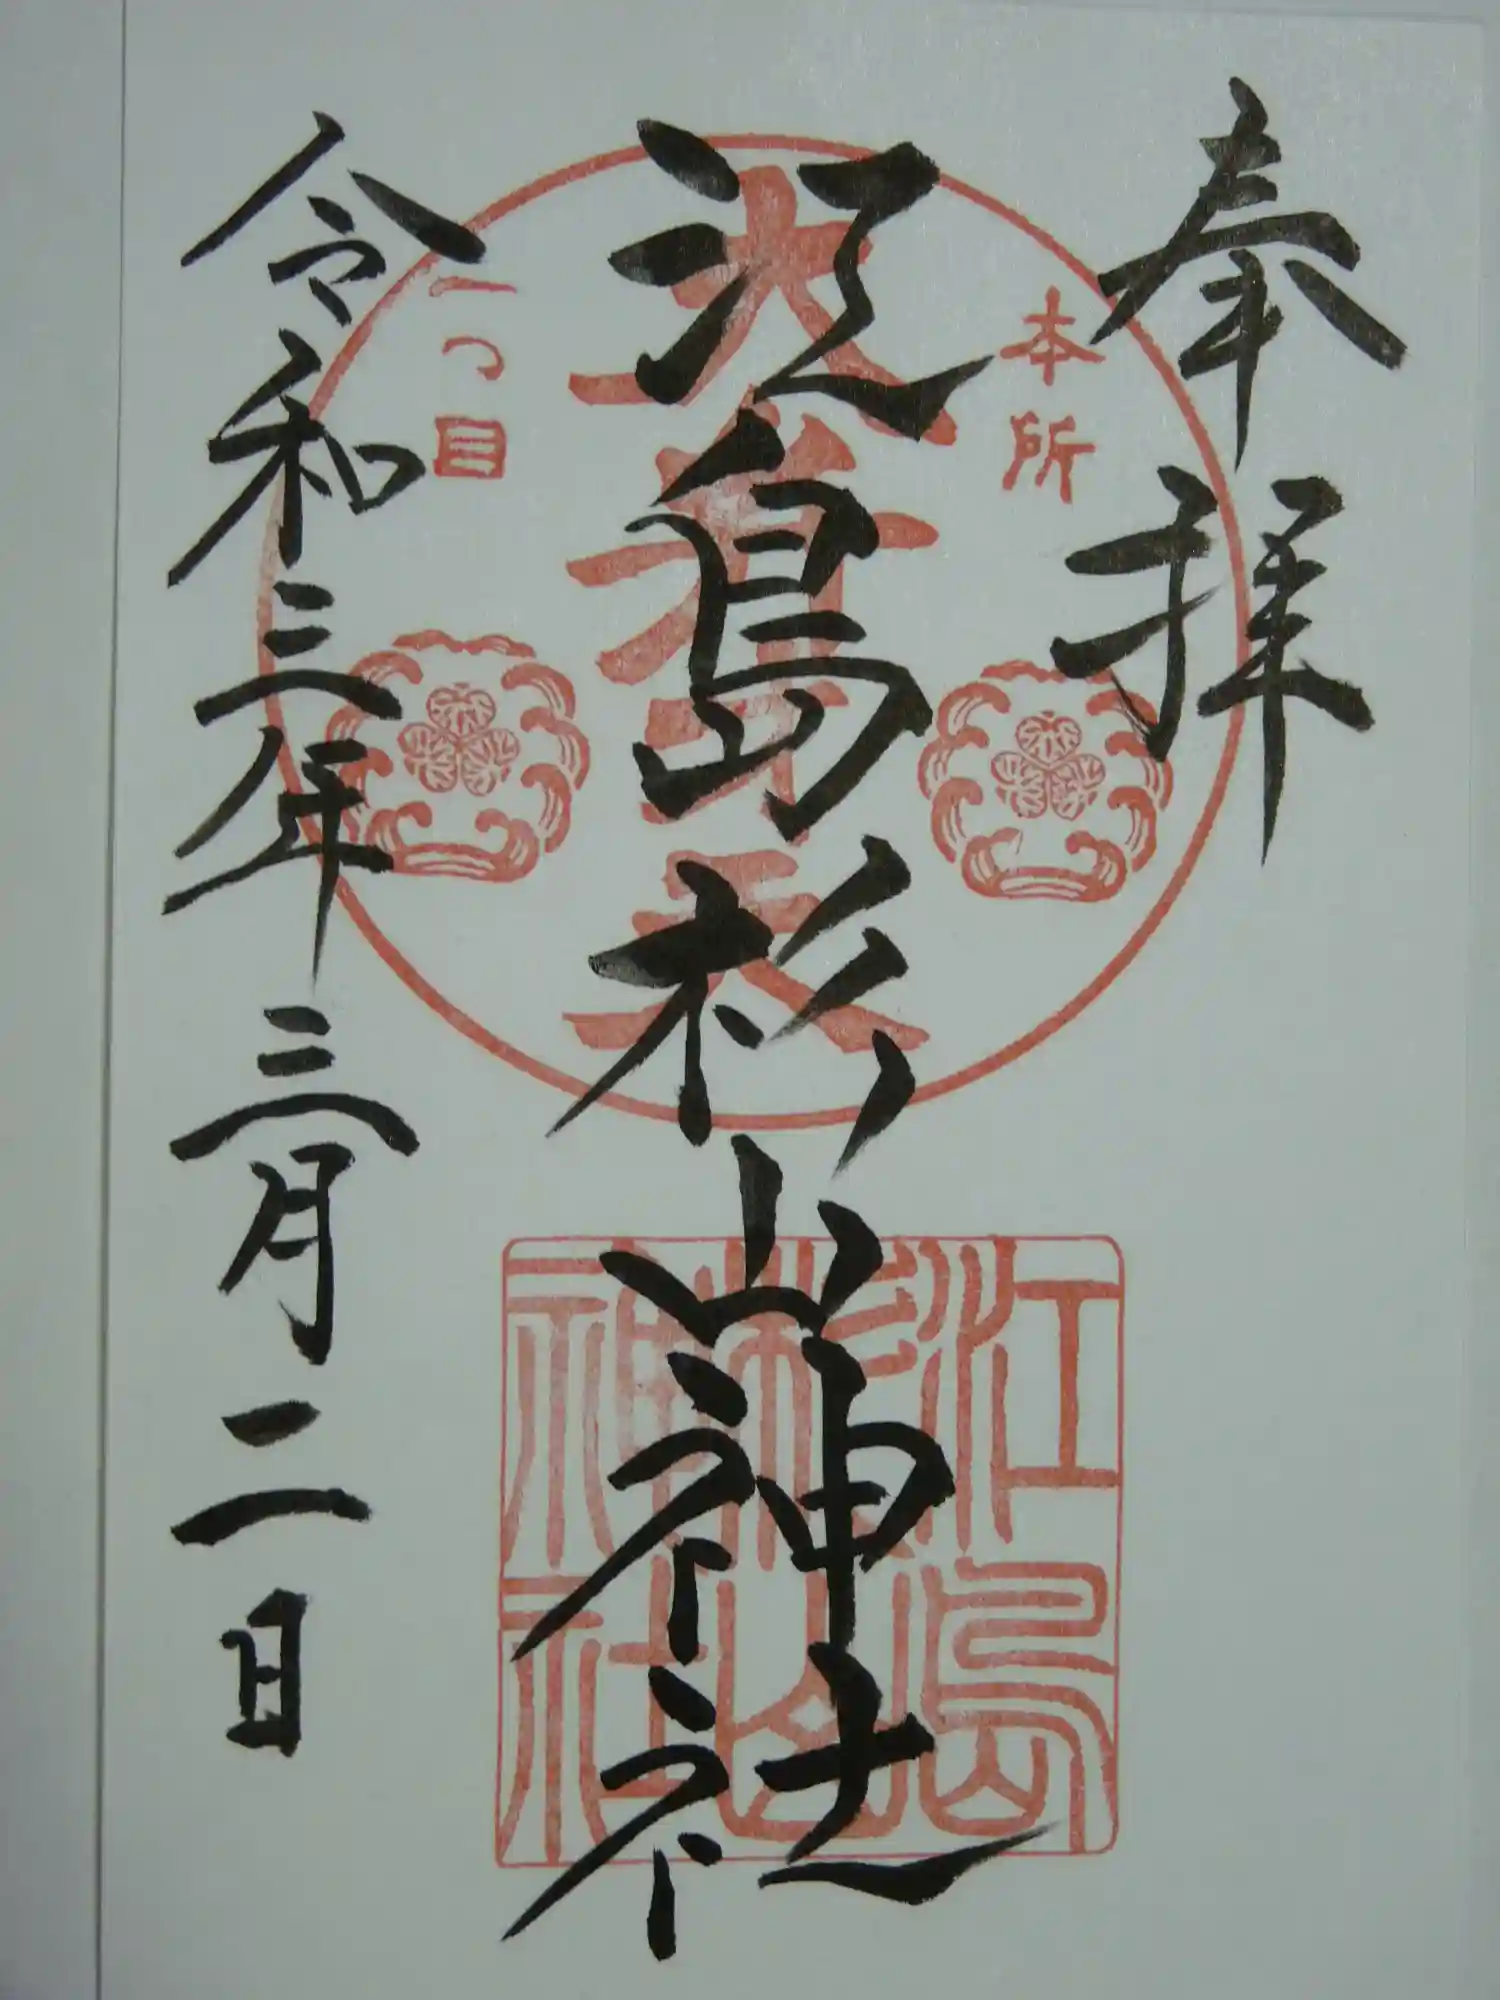 奉拝
本所
大弁才天
一つ目
江島杉山神社
江島
杉山
神社
令和三年三月二日